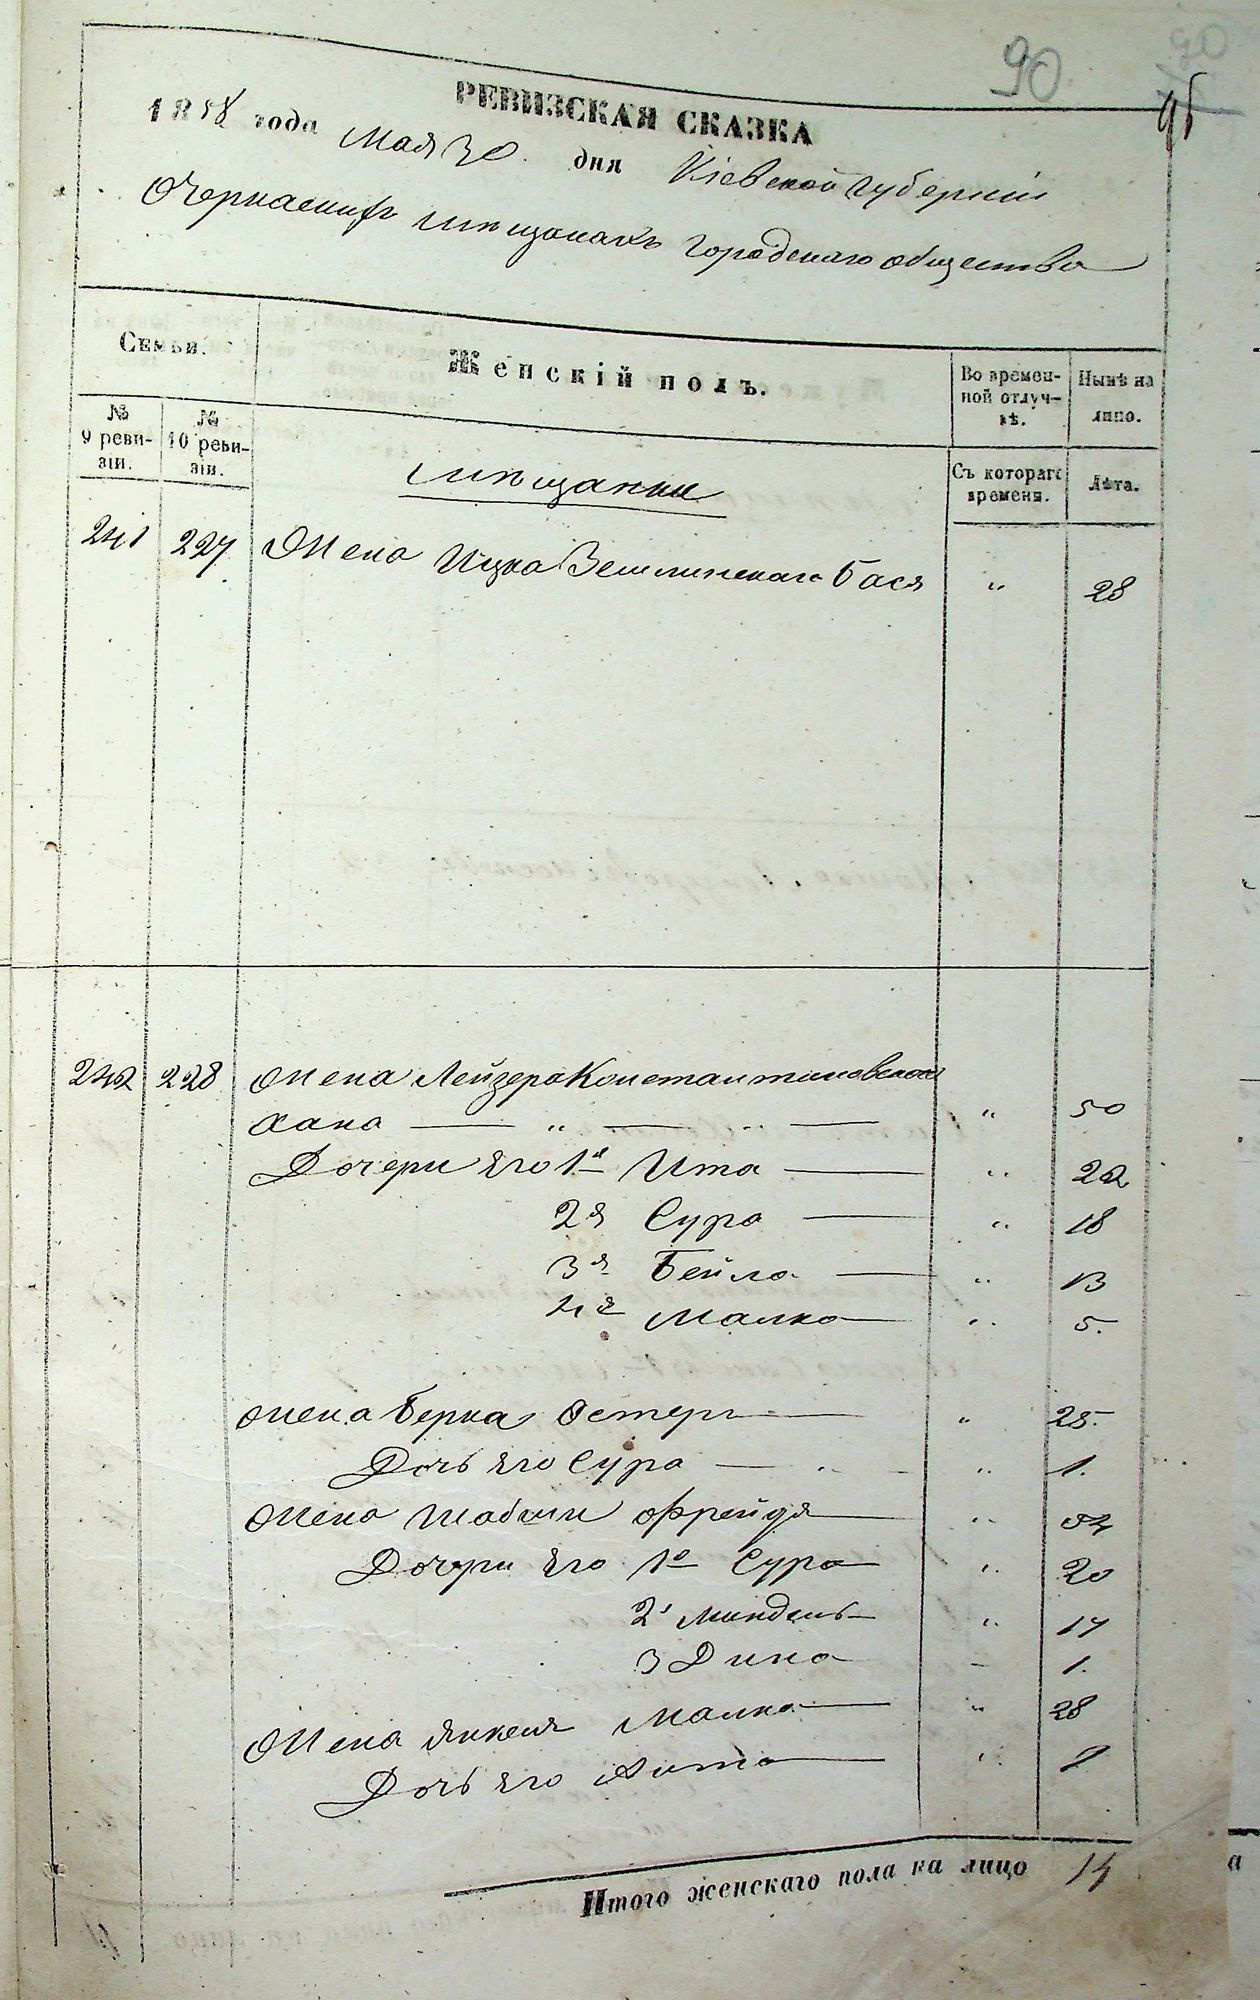 90
РЕВИЗСКАЯ СКАЗКА
1858 года Мая 30 дня Кіевской губерніи
О Черкаскихъ мѣщанахъ городскаго общества
Семьи.
Женскій полъ.
Во временной отлучкѣ.
Нынѣ на лицо.
№ 9 ревизіи.
№ 10 ревизіи.
Съ котораго времени.
Лѣта.
Мѣщанки
241 227 Жена Ицка Бася " 28
242 228 Жена Лейзера Константиновскаго
Хана — " — " — " 50
Дочери Его 1я Ита — " 22
2я Сура — " 18
3я Бейла — " 13
4я Малка — " 5.
Жена Берка Естеръ — " 25.
Дочь Его Сура — " 1.
Жена Шабши Фрейдя — "
Дочери Его 1я Сура — " 20
2 Миндель — " 17
3 Дина — 1.
Жена Янкеля Малка — " 28
Дочь Его —
Итого женскаго пола на лицо 14